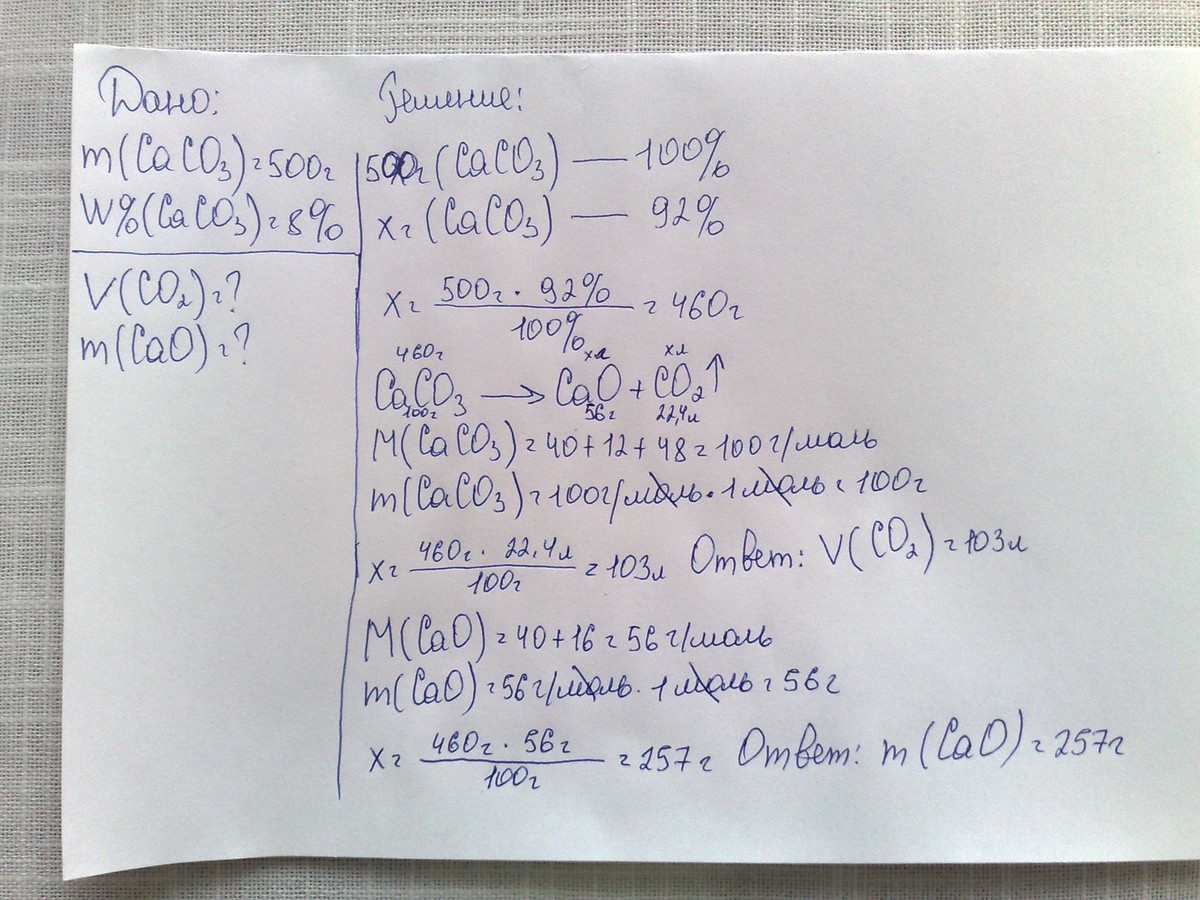 Дано:
m(CaCO₃)=500г
W%(CaCO₃)=8%
V(CO₂)=?
m(CaO)=?
Решение:
500г(CaCO₃) — 100%
x=(CaCO₃) — 92%
x= 500г · 92% / 100% = 460г
460г хл хл
CaCO₃ → CaO + CO₂↑
100г 56г 22,4л
M(CaCO₃)=40+12+48=100г/моль
m(CaCO₃)=100г/моль·1моль=100г
x= 460г · 22,4л / 100г =103л Ответ: V(CO₂)=103л
M(CaO)=40+16=56г/моль
m(CaO)=56г/моль·1моль=56г
x= 460г · 56г / 100г =257г Ответ: m(CaO)=257г